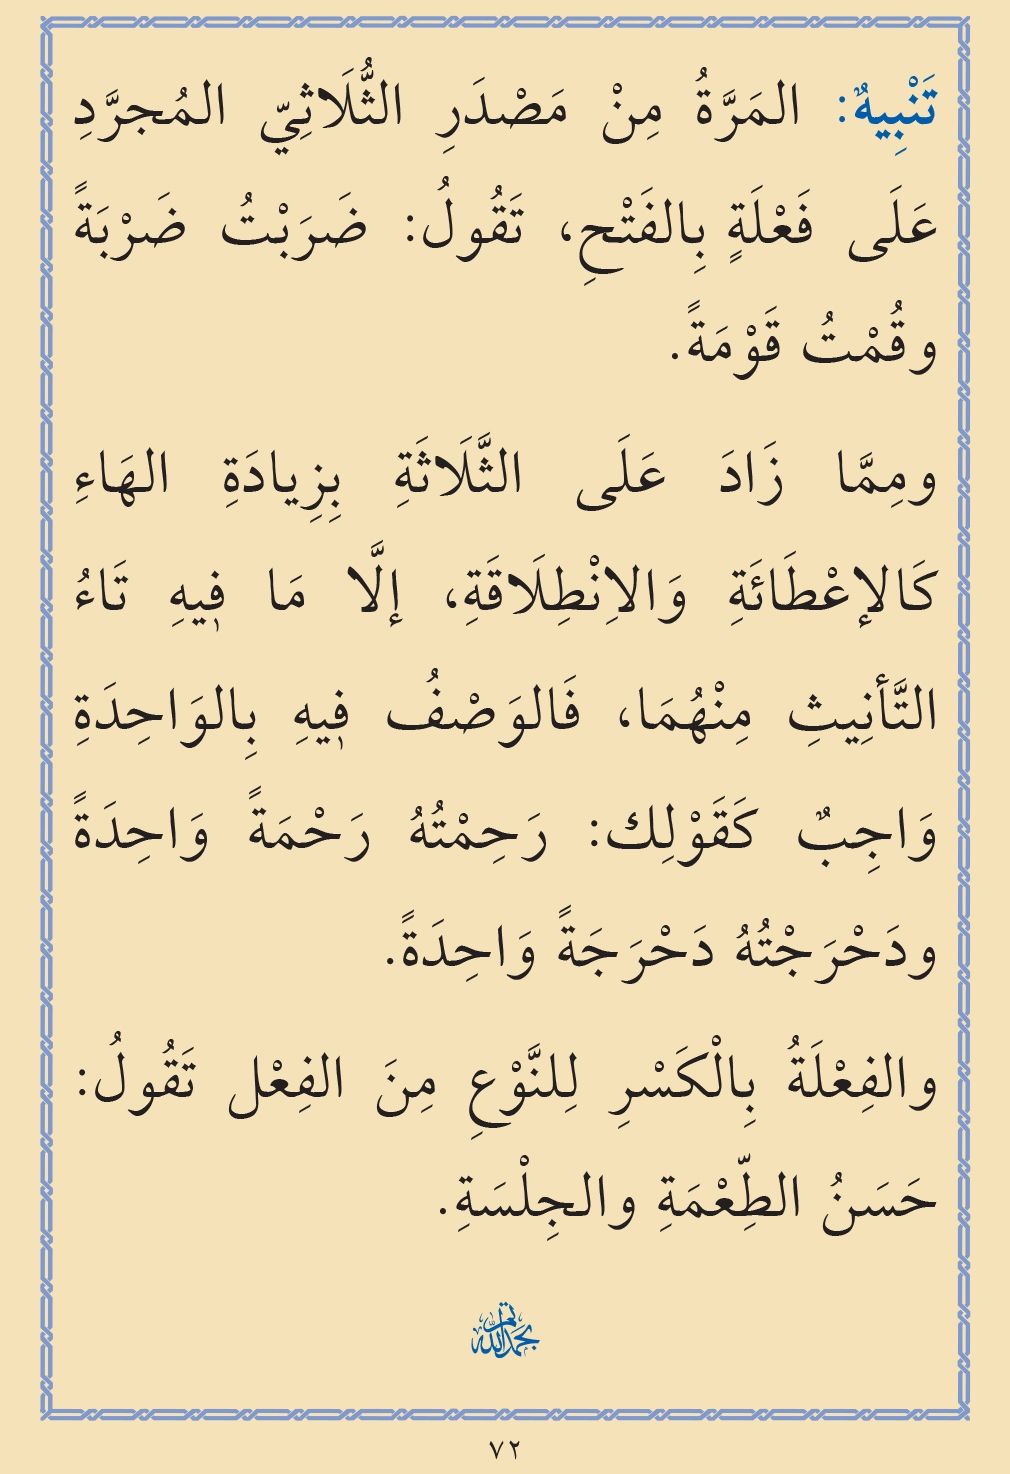 تَنْبِيهٌ: المَرَّةُ مِنْ مَصْدَرِ الثُّلَاثِيّ المُجرَّدِ
عَلَى فَعْلَةٍ بِالفَتْحِ، تَقُولُ: ضَرَبْتُ ضَرْبَةً
وقُمْتُ قَوْمَةً.
ومِمَّا زَادَ عَلَى الثَّلَاثَةِ بِزِيادَةِ الهَاءِ
كَالإعْطَائَةِ وَالاِنْطِلَاقَةِ، إلَّا مَا فِيهِ تَاءُ
التَّأنِيثِ مِنْهُمَا، فَالوَصْفُ فِيهِ بِالوَاحِدَةِ
وَاجِبٌ كَقَوْلِك: رَحِمْتُهُ رَحْمَةً وَاحِدَةً
ودَحْرَجْتُهُ دَحْرَجَةً وَاحِدَةً.
والفِعْلَةُ بِالْكَسْرِ لِلنَّوْعِ مِنَ الفِعْل تَقُولُ:
حَسَنُ الطِّعْمَةِ والجِلْسَةِ.
تم بحمد الله
٧٢